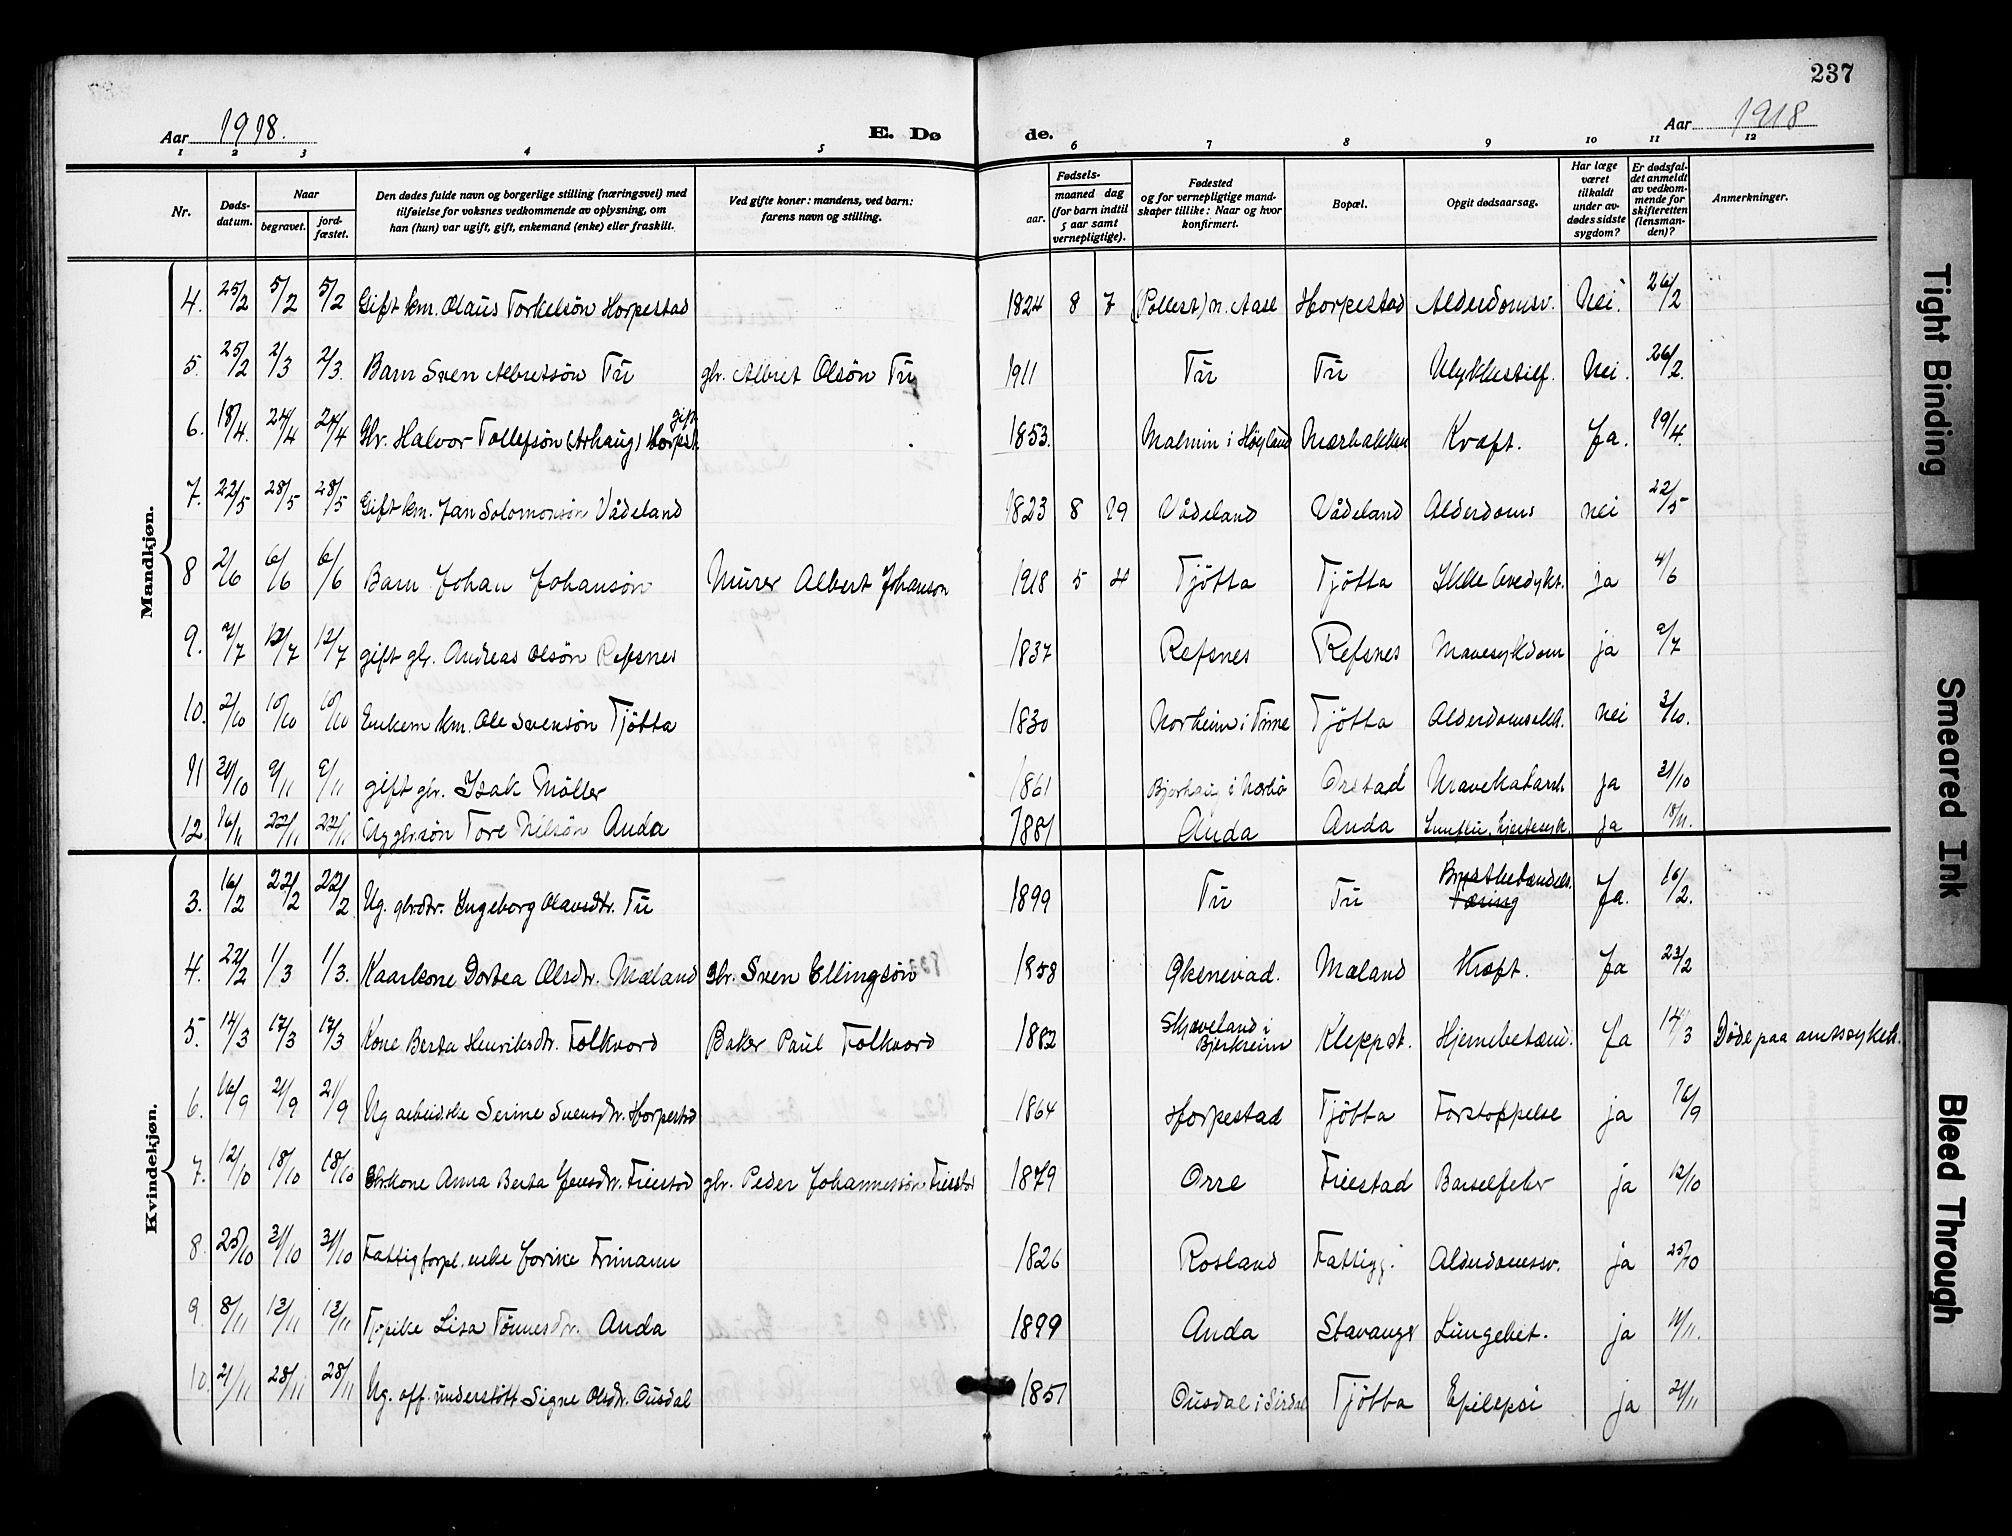 237
Aar 1918.
E. Dø
de.
Aar 1918
1 2 3 4 5 6 7 8 9 10 11 12
Nr. Døds-datum. Naar begravet. jord-fæstet. Den dødes fulde navn og borgerlige stilling (næringsvei) med tilføielse for voksnes vedkommende av oplysning, om han (hun) var ugift, gift, enkemand (enke) eller fraskilt. Ved gifte koner: mandens, ved barn: farens navn og stilling. Fødsels- aar. maaned dag (for barn indtil 5 aar samt vernepligtige). Fødested og for vernepligtige mand-skaper tillike: Naar og hvor konfirmert. Bopæl. Opgit dødsaarsag. Har læge været tilkaldt under av-dødes sidste sygdom? Er dødsfal-det anmeldt av vedkom-mende for skifteretten (lensman-den)? Anmerkninger.
Mandkjøn.
4. 25/2 5/2 5/2 Gift km. Olaus Torkelsøn Horpestad 1824 8 7 (Pollest) n. Aase Horpestad Alderdomsv. Nei. 26/2
5. 25/2 2/3 2/3. Barn Sven Albretsøn Tu gbr. Albret Olsøn Tu 1911 Tu Tu Ulykkestilf. Nei. 26/2.
6. 18/4. 24/4 24/4 Gbr. Halvor Tollefsøn (Arhaug) Horpest. gift 1853. Malmin i Høyland Nærbakken Kræft. Ja. 19/4.
7. 22/5 28/5 28/5 Gift km. Jan Solomonsøn Vådeland 1823 8 29 Vådeland Vådeland Alderdoms nei 22/5
8 2/6 6/6 6/6 Barn Johan Johansøn Murer Albert Johanson 1918 5 4 Tjøtta Tjøtta ja 4/6
9. 7/7 12/7 12/7 gift gbr. Andreas Olsøn Refsnes 1837 Refsnes Refsnes Mavesykdom ja 9/7
10. 2/10 10/10 10/10 Enkem km. Ole Svensøn Tjøtta 1830 Norheim i Time Tjøtta nei 3/10.
11 31/10 9/11 9/11 gift gbr. Isak Møller 1861 Bjorhaug i Nærbø Orstad Mavekatarrh. ja 31/10
12. 16/11 22/11 22/11 Ug gbr.søn Tore Nilsøn Anda 1881 Anda Anda ja 18/11.
Kvindekjøn.
3. 16/2 22/2 22/2 Ug. gbrdtr. Ingeborg Olavsdtr. Tu 1899 Tu Tu Brystbetændels. Tæring Ja. 16/2.
4. 22/2 1/3 1/3. Kaarkone Dortea Olsdtr. Mæland Gbr. Sven Ellingsøn 1858 Øksnevad. Mæland Kræft. Ja 23/2
5. 14/3 17/3 17/3 Kone Berta Henriksdtr. Folkvord Baker Paul Folkvord 1882 Skjæveland i Bjerkreim Kleppst. Hjernebetænd. Ja 14/3 Døde paa amtssykeh.
6. 16/9 21/9 21/9 Ug arbeidske Serine Svensdtr. Horpestad 1864 Horpestad Tjøtta Forstoppelse ja 16/9
7. 12/10 18/10 18/10 Gbrkone Anna Berta Jensdtr. Friestad gbr. Peder Johannessøn Friestad 1879 Orre Friestad Barselfeber ja 12/10
8 25/10 31/10 31/10 Fattigforpl. enke Jorine Frimann 1826 Rosland Fattigg. Alderdomssv. ja 25/10
9. 8/11 13/11 13/11 Tjpike Lisa Tønnesdtr. Anda 1899 Anda Stavanger Lungebet. ja 11/11.
10. 21/11 28/11 28/11 Ug. off. understøtt Signe Olsdtr. Ousdal 1851 Ousdal i Sirdal Tjøtta Epilepsi ja 21/11
Tight Binding
Smeared Ink
Bleed Through